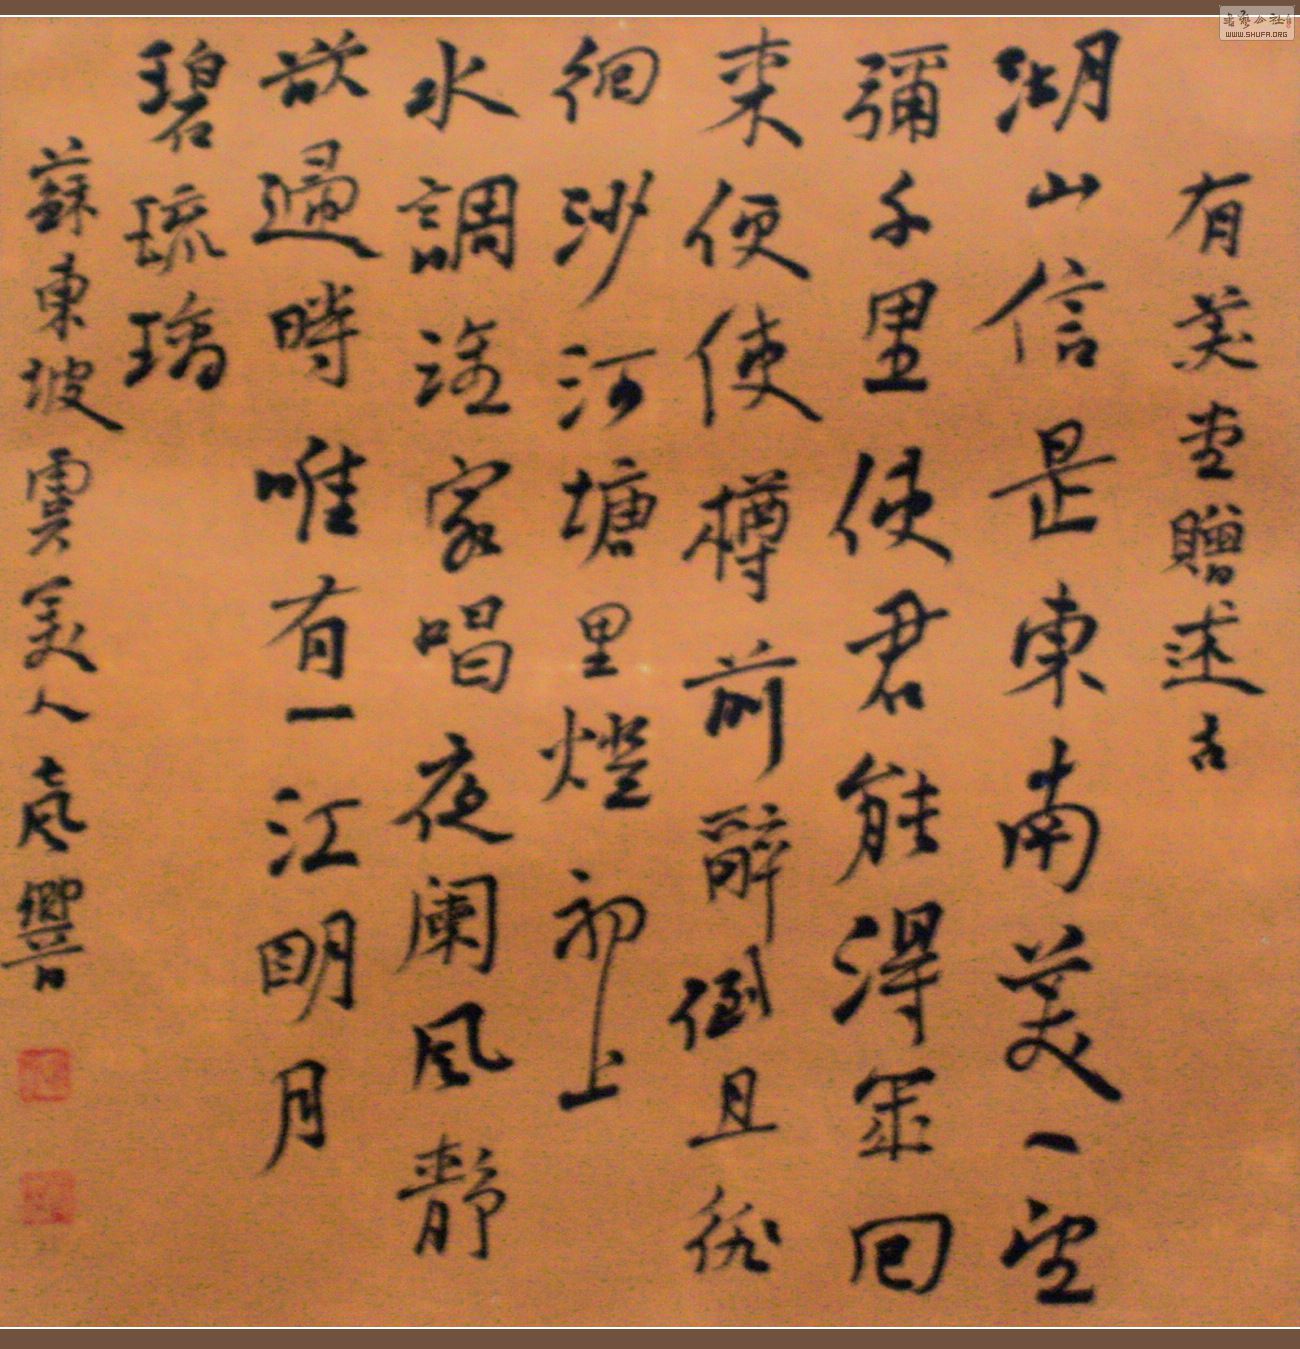 有美堂贈述古
湖山信是東南美一望
彌千里使君能得幾回
來便使樽前醉倒且徘
徊沙河塘里燈初上
水調誰家唱夜闌風靜
欲歸時唯有一江明月
碧琉璃
蘇東坡虞美人
WWW.SHUFA.ORG